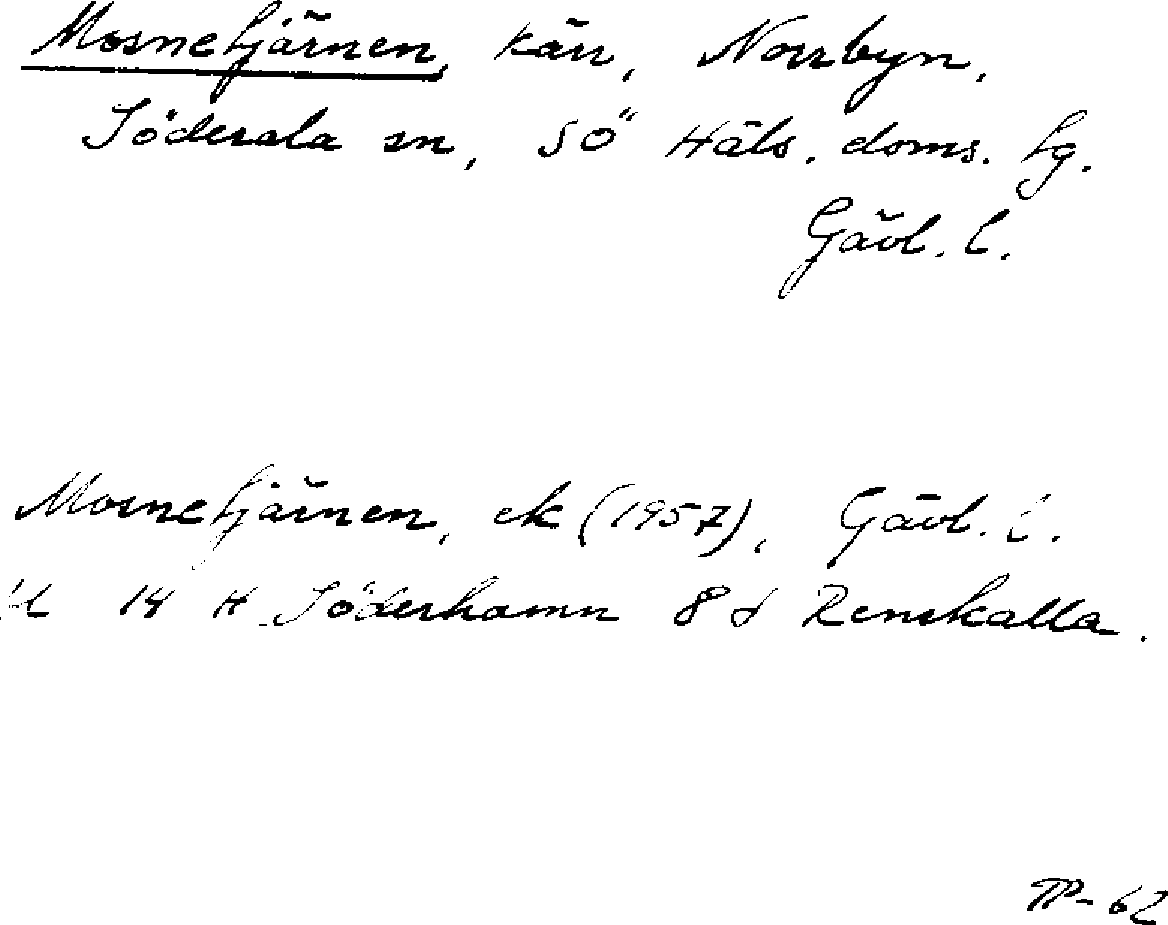 Mosnetjärnen, kärr, Norrbyn,
Söderala sn, SÖ Häls. doms. tg.
Gävl. l.
Mosnetjärnen, ek (1957), Gävl. l.
bl 14 H Söderhamn 8 d Renskalla.
TP-62